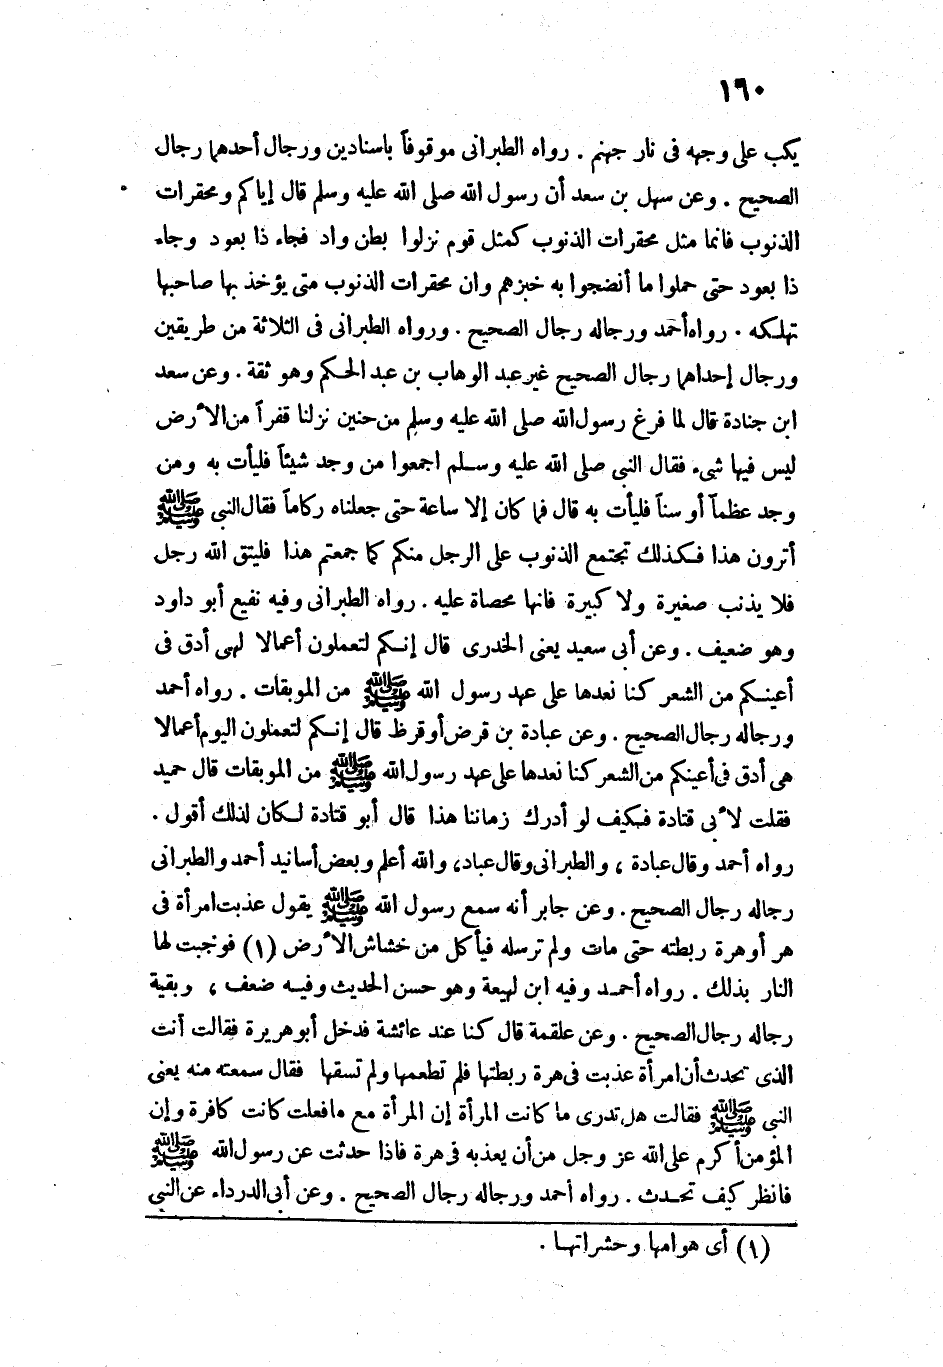 ١٦٠
يكب على وجهه فى نار جهنم . رواه الطبرانى موقوفاً باسنادين ورجال أحدهما رجال
الصحيح . وعن سهل بن سعد أن رسول الله صلى الله عليه وسلم قال إياكم ومحقرات
الذنوب فانما مثل محقرات الذنوب كمثل قوم نزلوا بطن واد فجاء ذا بعود وجاء
ذا بعود حتى حملوا ما أنضجوا به خبزهم وان محقرات الذنوب متى يؤخذ بها صاحبها
تهلكه . رواه أحمد ورجاله رجال الصحيح . ورواه الطبرانى فى الثلاثة من طريقين
ورجال إحداهما رجال الصحيح غير عبد الوهاب بن عبد الحكم وهو ثقة . وعن سعد
ابن جنادة قال لما فرغ رسول الله صلى الله عليه وسلم من حنين نزلنا قفراً من الأرض
ليس فيها شىء فقال النبى صلى الله عليه وسلم اجمعوا من وجد شيئاً فليأت به ومن
وجد عظماً أو سناً فليأت به قال فما كان إلا ساعة حتى جعلناه ركاماً فقال النبى ﷺ
أترون هذا فكذلك تجتمع الذنوب على الرجل منكم كما جمعتم هذا فليتق الله رجل
فلا يذنب صغيرة ولا كبيرة فانها محصاة عليه . رواه الطبرانى وفيه نفيع أبو داود
وهو ضعيف . وعن أبى سعيد يعنى الخدرى قال إنكم لتعملون أعمالا لهى أدق فى
أعينكم من الشعر كنا نعدها على عهد رسول الله ﷺ من الموبقات . رواه أحمد
ورجاله رجال الصحيح . وعن عبادة بن قرض أو قرظ قال إنكم لتعملون اليوم أعمالا
هى أدق فى أعينكم من الشعر كنا نعدها على عهد رسول الله ﷺ من الموبقات قال حميد
فقلت لأبى قتادة فكيف لو أدرك زماننا هذا قال أبو قتادة لكان لذلك أقول .
رواه أحمد وقال عبادة ، والطبرانى وقال عباد، والله أعلم وبعض أسانيد أحمد والطبرانى
رجاله رجال الصحيح . وعن جابر أنه سمع رسول الله ﷺ يقول عذبت امرأة فى
هر أو هرة ربطته حتى مات ولم ترسله فيأكل من خشاش الأرض (١) فوجبت لها
النار بذلك . رواه أحمد وفيه ابن لهيعة وهو حسن الحديث وفيه ضعف ، وبقية
رجاله رجال الصحيح . وعن علقمة قال كنا عند عائشة فدخل أبو هريرة فقالت أنت
الذى تحدث أن امرأة عذبت فى هرة ربطتها فلم تطعمها ولم تسقها فقال سمعته منه يعنى
النبى ﷺ فقالت هل تدرى ما كانت المرأة إن المرأة مع ما فعلت كانت كافرة وإن
المؤمن أكرم على الله عز وجل من أن يعذبه فى هرة فاذا حدثت عن رسول الله ﷺ
فانظر كيف تحدث . رواه أحمد ورجاله رجال الصحيح . وعن أبى الدرداء عن النبى
(١) أى هوامها وحشراتها .